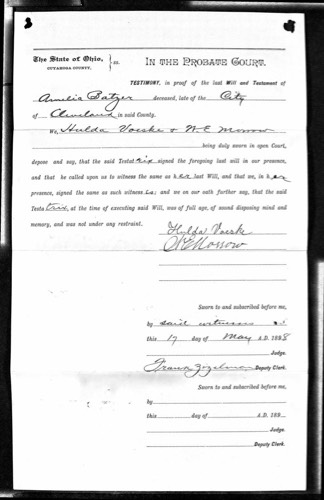 The State of Ohio, } ss. In the Probate Court.
CUYAHOGA COUNTY,
TESTIMONY, in proof of the last Will and Testament of
Amelia Batzer deceased, late of the City
of Cleveland in said County.
We, Hulda Voeske & W.E. Morrow
being duly sworn in open Court,
depose and say, that the said Testatrix signed the foregoing last will in our presence,
and that he called upon us to witness the same as her last Will, and that we, in her
presence, signed the same as such witnesses; and we on our oath further say, that the said
Testatrix, at the time of executing said Will, was of full age, of sound disposing mind and
memory, and was not under any restraint.
Hulda Voesk
W E Morrow
Sworn to and subscribed before me,
by said witnesses
this 17 day of May A.D. 1898
Judge.
Deputy Clerk.
Sworn to and subscribed before me,
by
this day of A.D. 189
Judge.
Deputy Clerk.